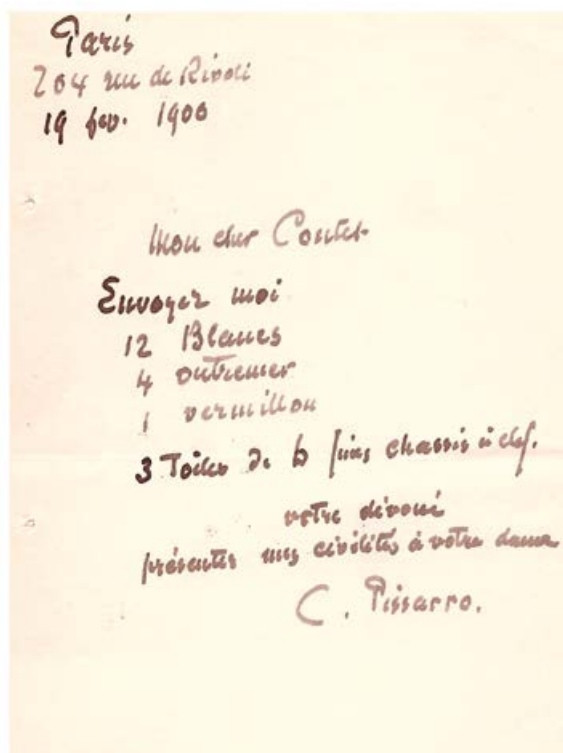 Paris
204 rue de Rivoli
19 fev. 1900
Mon cher Contet
Envoyez moi
12 Blancs
4 outremer
1 vermillon
3 Toiles de 6 fines chassis à clef.
votre dévoué
présentez mes civilités à votre dame
C. Pissarro.